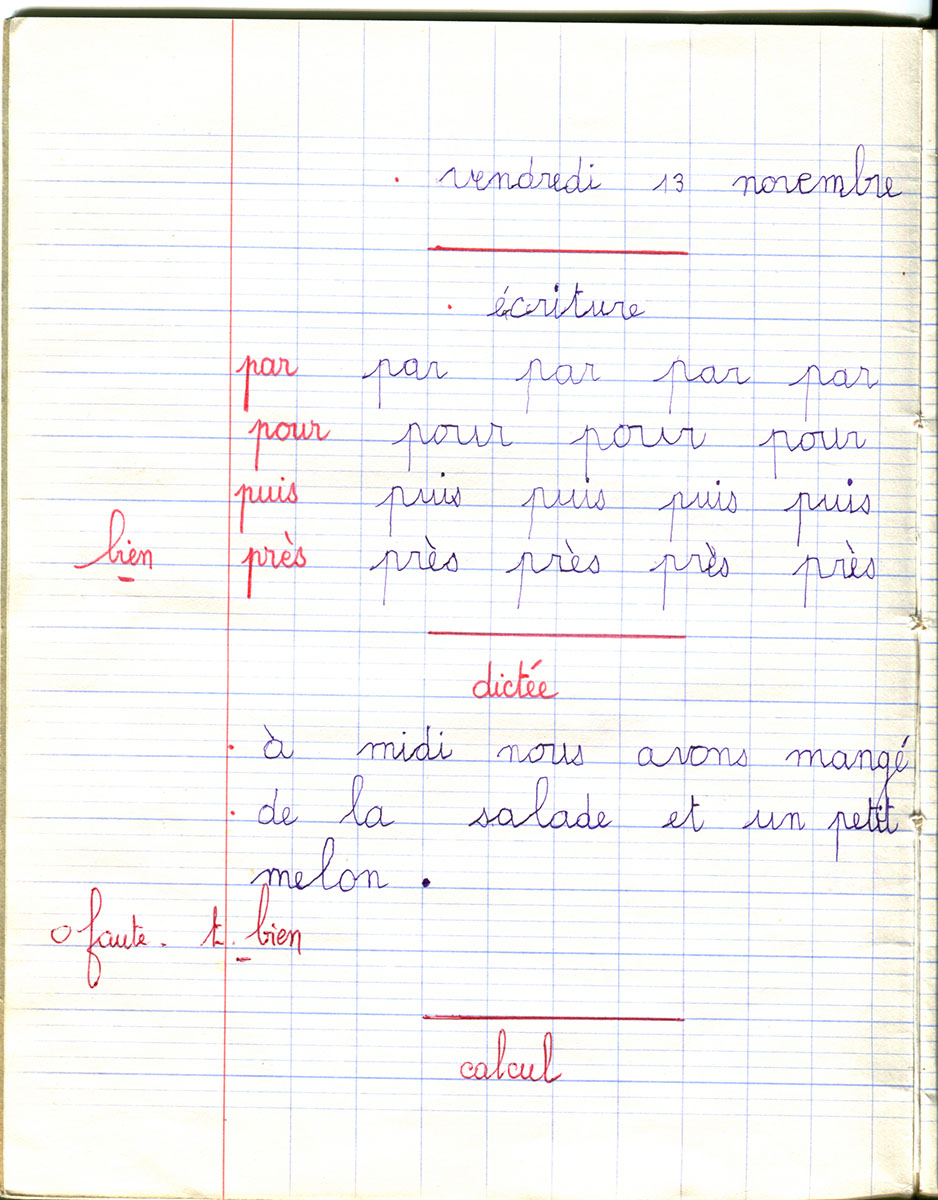 vendredi 13 novembre
écriture
par par par par par
pour pour pour pour
puis puis puis puis puis
bien près près près près près
dictée
à midi nous avons mangé
de la salade et un petit
melon .
0 faute . t. bien
calcul